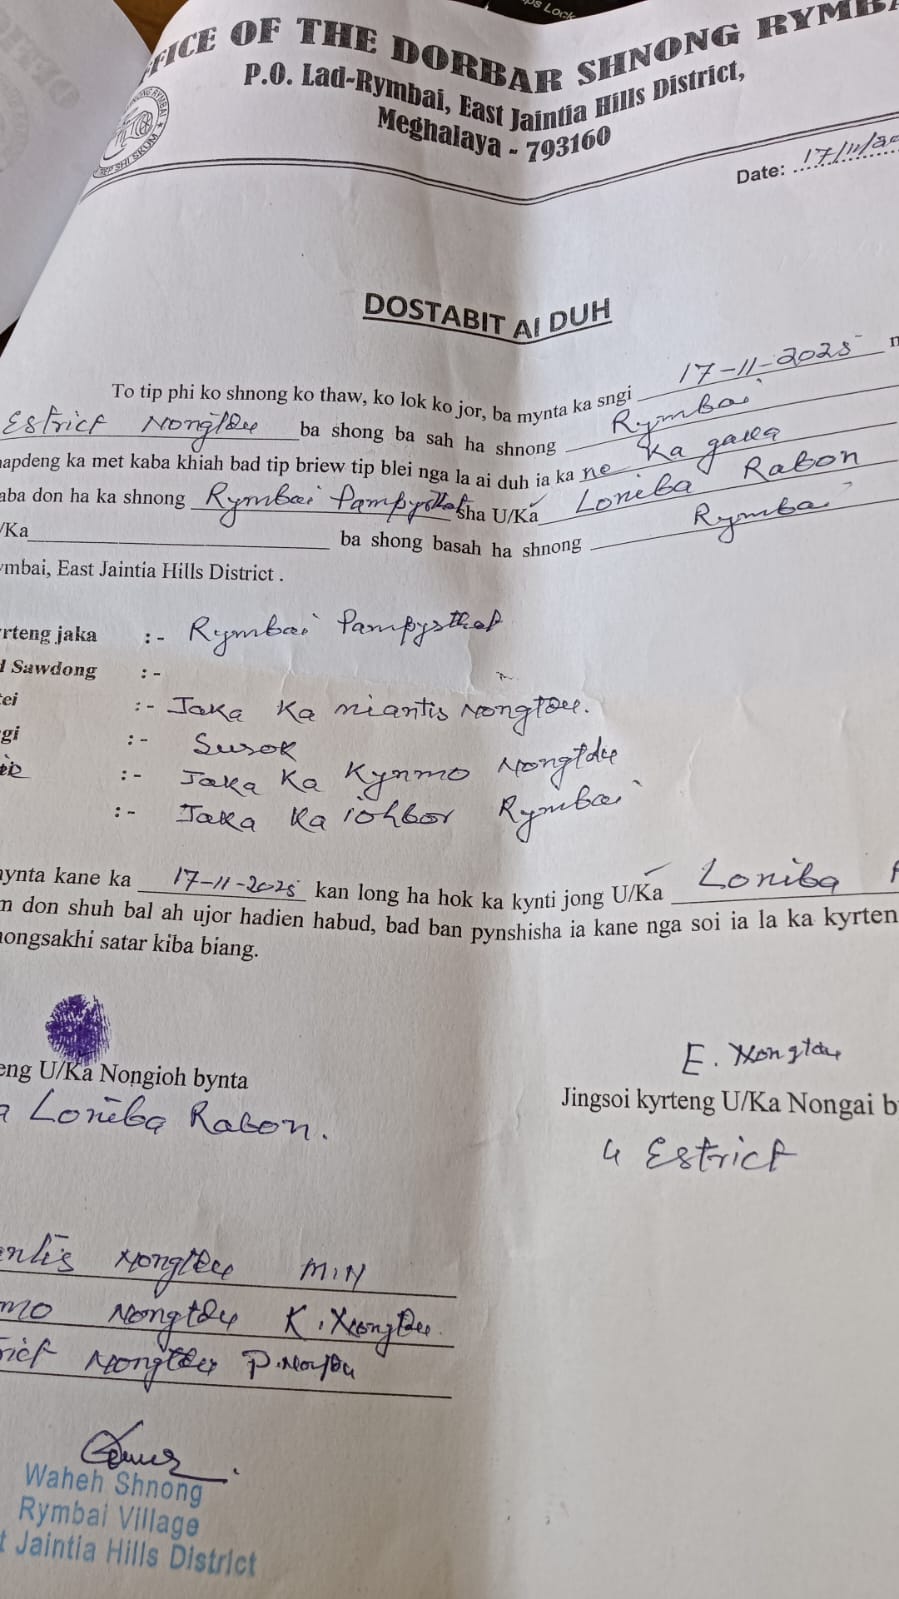 OFFICE OF THE DORBAR SHNONG RYMBA
P.O. Lad-Rymbai, East Jaintia Hills District,
Meghalaya - 793160
Date: 17/11/20
DOSTABIT AI DUH
To tip phi ko shnong ko thaw, ko lok ko jor, ba mynta ka sngi 17-11-2025
Estrict Nongtdu ba shong ba sah ha shnong Rymbai
hapdeng ka met kaba khiah bad tip briew tip blei nga la ai duh ia ka ne Ka
aba don ha ka shnong Rymbai Pampysthat sha U/Ka Loniba Rabon
/Ka ba shong basah ha shnong Rymbai
ymbai, East Jaintia Hills District .
yrteng jaka :- Rymbai Pampysthat
d Sawdong :-
tei :- Jaka Ka niantis Nongtdu.
gi :- Susok
:- Jaka Ka Kynmo Nongtdu
:- Jaka Ka iohbor Rymbai
mynta kane ka 17-11-2025 kan long ha hok ka kynti jong U/Ka Loniba
m don shuh bal ah ujor hadien habud, bad ban pynshisha ia kane nga soi ia la ka kyrten
nongsakhi satar kiba biang.
E. Nongtdu
eng U/Ka Nongioh bynta
Jingsoi kyrteng U/Ka Nongai b
a Loniba Rabon.
u Estrict
antis Nongtdu M.N
mo Nongtdu K. Nongtdu
rict Nongtdu
Waheh Shnong
Rymbai Village
t Jaintia Hills District